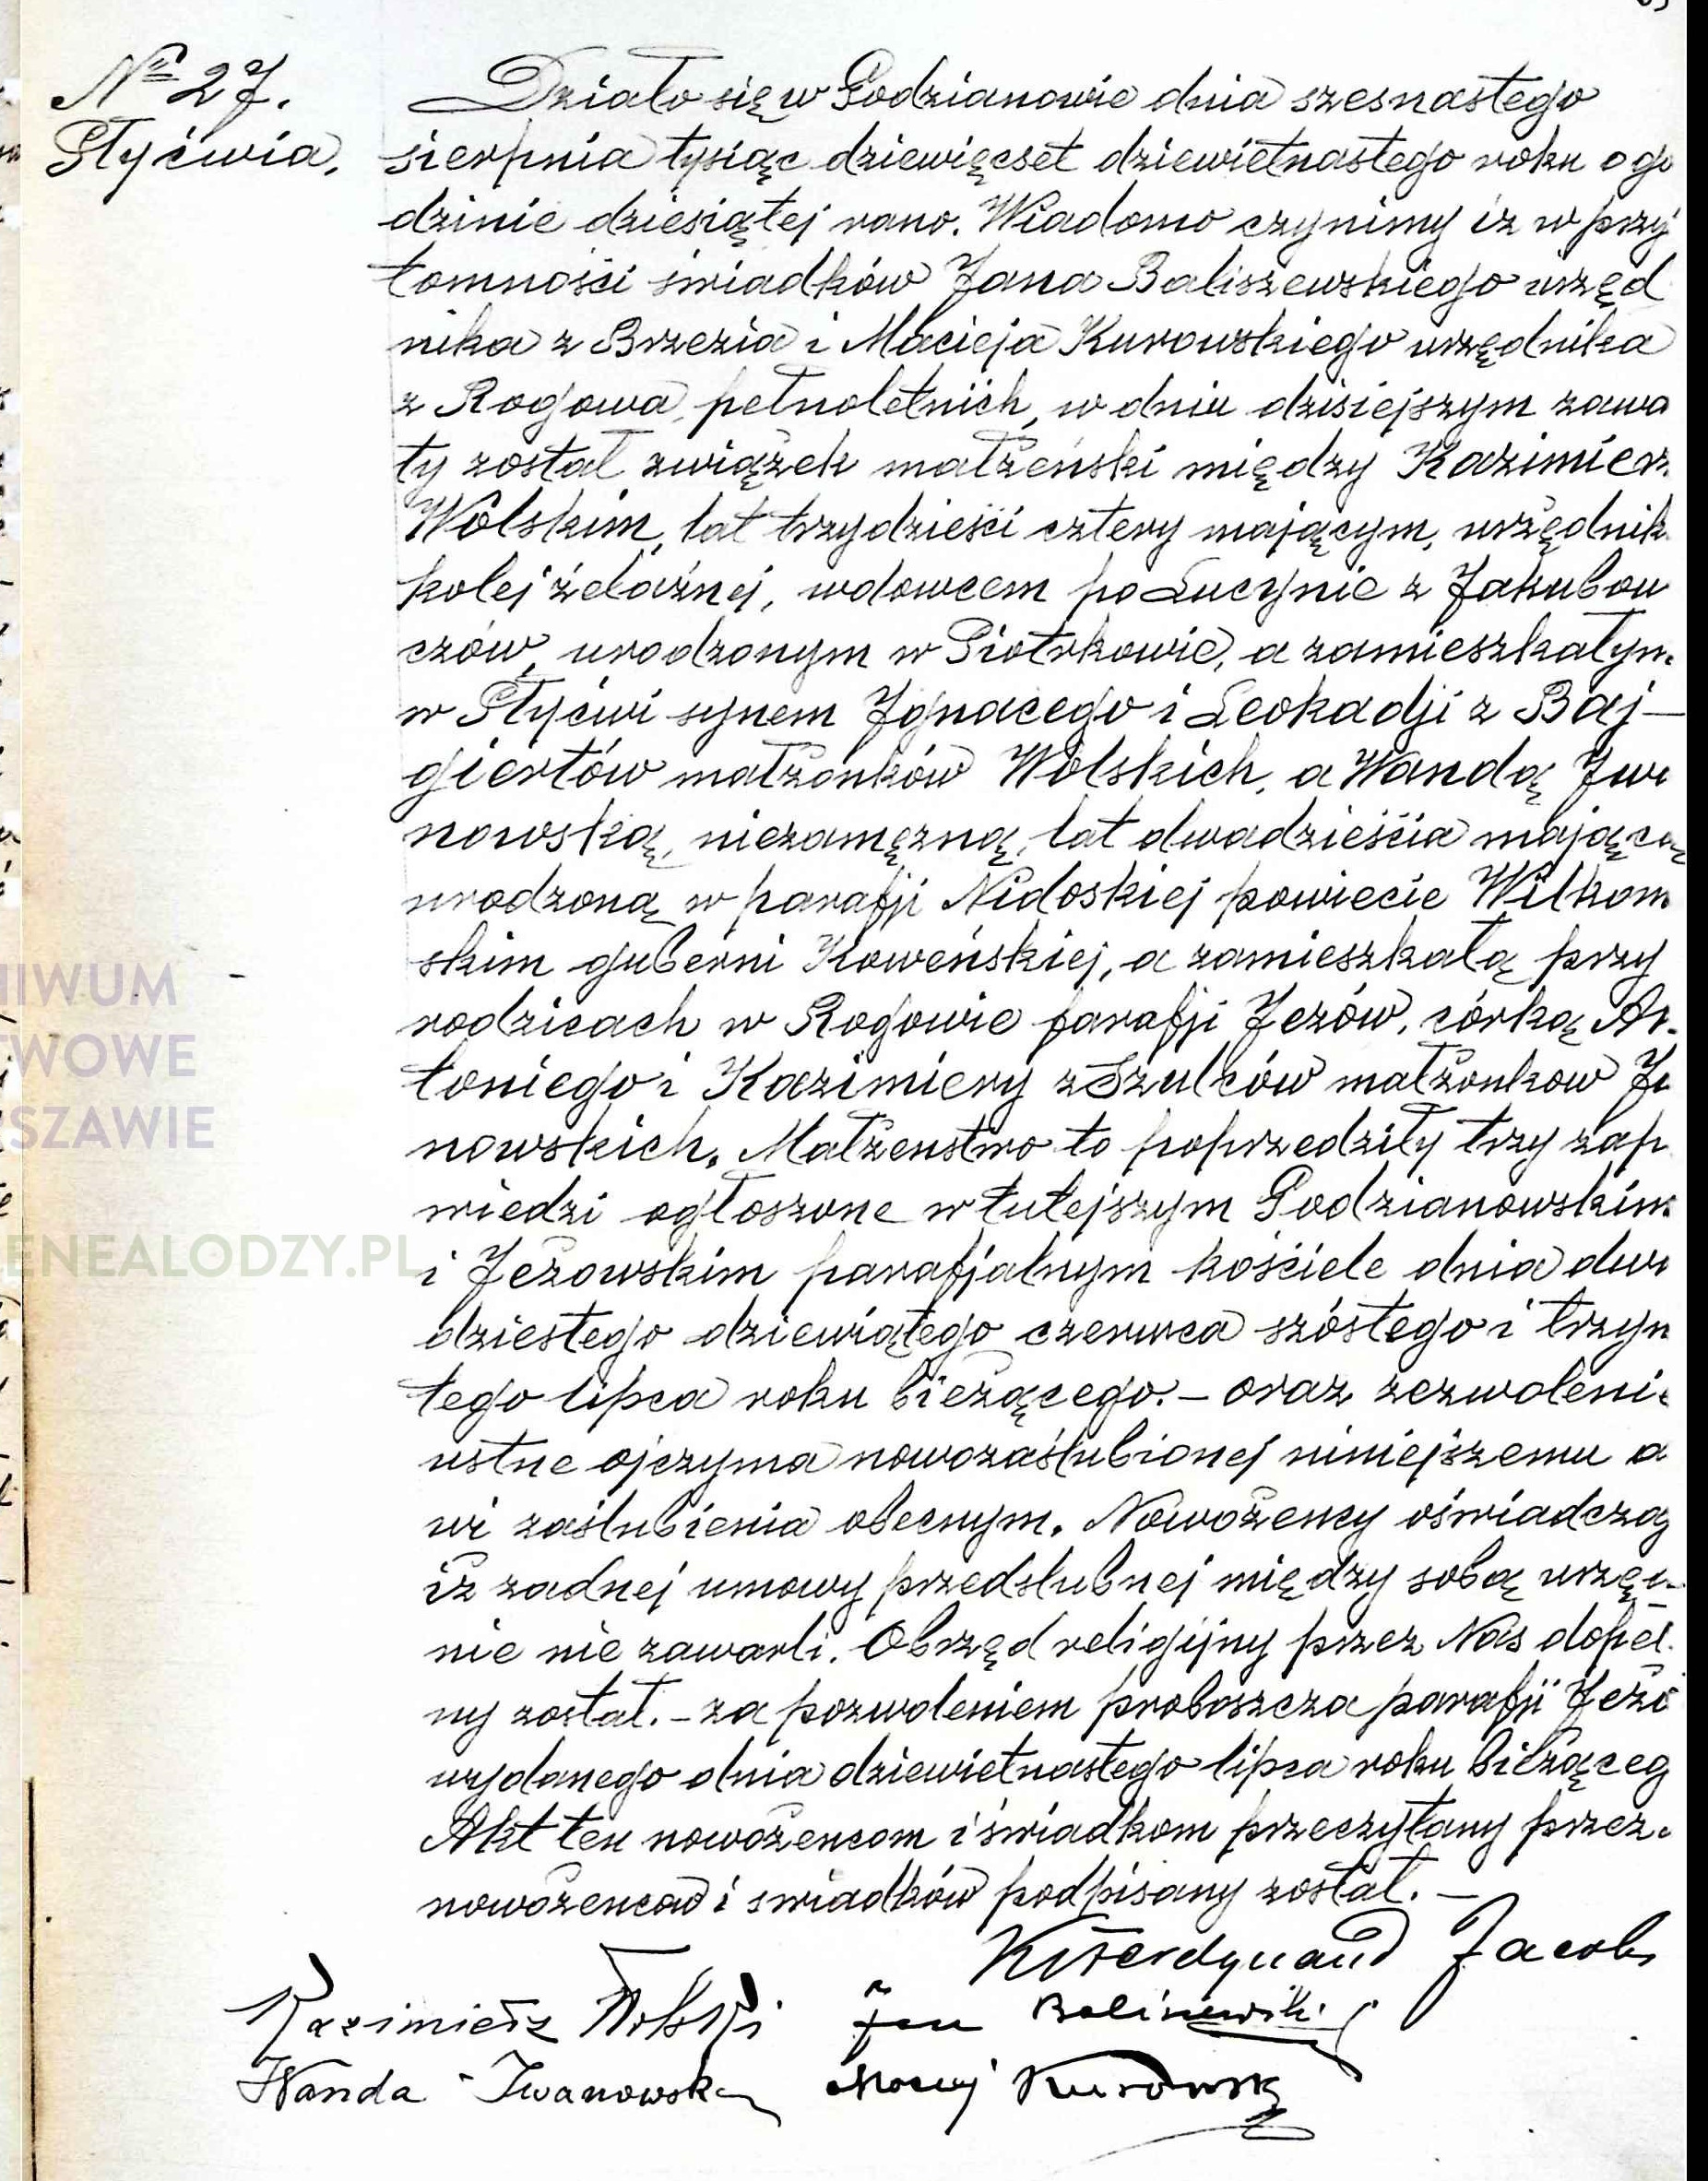 № 27.
Słyćwia.
Działo się w Godzianowie dnia szesnastego
sierpnia tysiąc dziewięcset dziewietnastego roku o go
dzinie dziesiątej rano. Wiadomo czynimy iż w przy
tomności świadków Jana Baliszewskiego urzęd
nika z Brzezia i Macieja Kurowskiego urzędnika
z Rogowa, pełnoletnich, w dniu dzisiejszym zawa
ty został związek małżeński między Kazimierz
Wolskim, lat trzydzieści cztery mającym, urzędnik
kolej żelaźnej, wdowcem po Lucynie z Jakubow
czów, urodzonym w Piotrkowie, a zamieszkałym
w Słyćwi synem Jgnacego i Leokadji z Baj—
giertów małżonków Wolskich, a Wandą Jwa
nowską, niezamężną, lat dwadzieścia mającą
urodzoną w parafji Nidoskiej powiecie Wilkom
skim guberni Koweńskiej, a zamieszkałą przy
rodzicach w Rogowie parafji Jeżów, córką An
toniego i Kazimiery z Szulców małżonkow Jw
nowskich. Małżenstwo to poprzedziły trzy zap
wiedzi ogłoszone w tutejszym Godzianowskim
i Jeżowskim parafjalnym kościele dnia dwu
dziestego dziewiątego czerwca szóstego i trzyn
tego lipca roku bieżącego. — oraz zezwoleni
ustne ojczyma nowozaślubionej niniejszemu a
wi zaślubienia obecnym. Nowożeńcy oświadczą
iż żadnej umowy przedślubnej między sobą urzęd
nie nie zawarli. Obrzęd religijny przez Nas dopeł
ny został. — za pozwoleniem proboszcza parafji Jeżó
wydanego dnia dziewietnastego lipca roku bieżąceg
Akt ten nowożencom i świadkom przeczytany przez
nowożencow i swiadków podpisany został. —
Ks Ferdynand Jacobs
Kazimierz Wolski Jan Baliszewski
Wanda Iwanowska Maciej Kurowski
ARCHIWUM
PAŃSTWOWE
W WARSZAWIE
GENEALODZY.PL